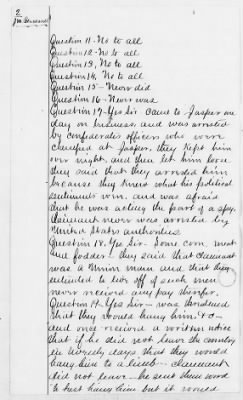 2
Question 11 - No to all
Question 12 - No to all
Question 13, No to all
Question 14, No to all
Question 15 - Never did
Question 16 - Never was
Question 17 - Yes Sir Came to Jasper one
day on business and was arrested
by confederate officers who were
at Jasper. They kept him
over night, and then let him loose
they said that they arrested him
because they knew what his political
sentiments were and was afraid
that he was acting the part of a spy.
Claimant never was arrested by
United States authorities
Question 18. Yes Sir - Some corn meat
and fodder - they said that claimant
was a Union man and that they
intended to live off of such men
never received any pay therefor.
Question 19 - Yes Sir - was threatened
that they would hang him &c -
and once received a written notice
that if he did not leave the country
in twenty days that they would
hang him to a limb - claimant
did not leave - he sent them word
to hang him but it would